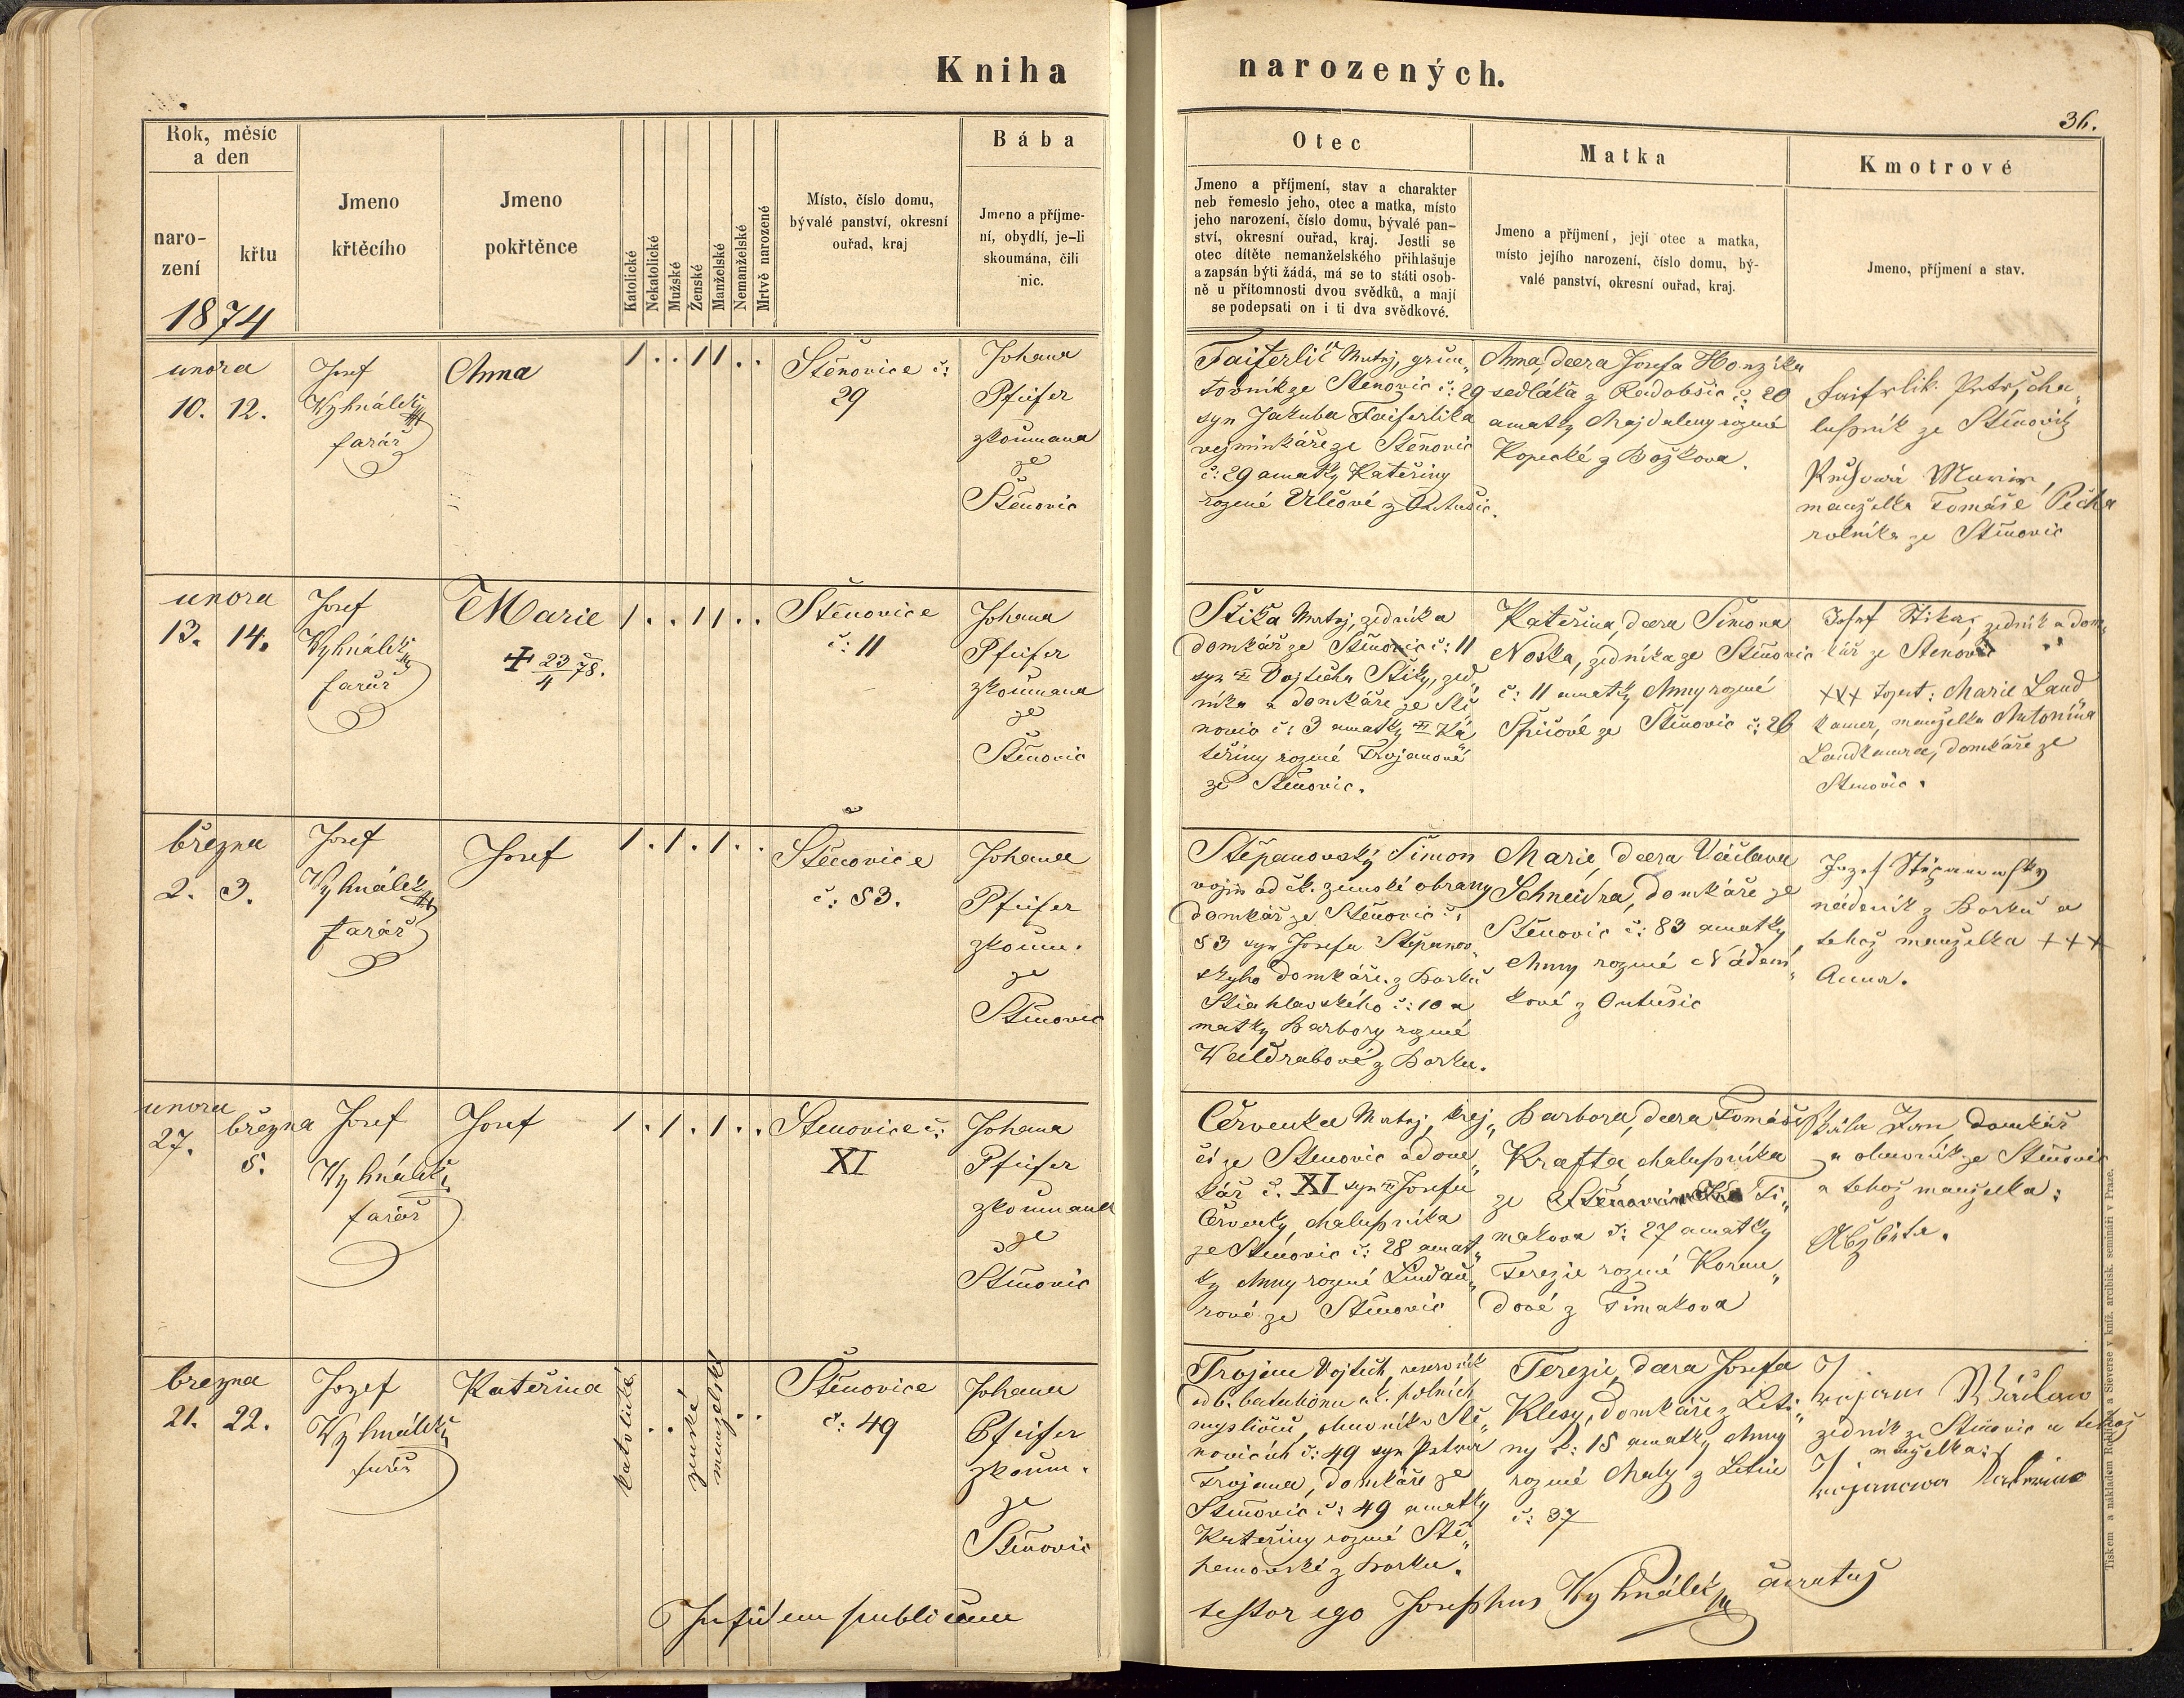 Kniha
narozených.
36.
Rok, měsíc
a den
naro-
zení
křtu
1874
Jmeno
křtěcího
Jmeno
pokřtěnce
Katolické
Nekatolické
Mužské
Ženské
Manželské
Nemanželské
Mrtvě narozené
Místo, číslo domu,
bývalé panství, okresní
ouřad, kraj
Bába
Jmeno a příjme-
ní, obydlí, je-li
skoumána, čili
nic.
Otec
Jmeno a příjmení, stav a charakter
neb řemeslo jeho, otec a matka, místo
jeho narození, číslo domu, bývalé pan-
ství, okresní ouřad, kraj. Jestli se
otec dítěte nemanželského přihlašuje
a zapsán býti žádá, má se to státi osob-
ně u přítomnosti dvou svědků, a mají
se podepsati on i ti dva svědkové.
Matka
Jmeno a příjmení, její otec a matka,
místo jejího narození, číslo domu, bý-
valé panství, okresní ouřad, kraj.
Kmotrové
Jmeno, příjmení a stav.
unora
10. 12.
Josef
Wyhnálek
farář
Anna
1 . . 1 1 . .
Štěnovice č:
29
Johana
Pfeifer
zkoumana
ze
Štěnovic
Faiferlík Matěj, grun„
tovník ze Štěnovic č: 29
syn Jakuba Faiferlíka
vejminkáře ze Štěnovic
č: 29 a matky Kateřiny
rozené Vlčové z
Anna, dcera Josefa Honzíka
sedláka z Radobšic č: 20
a matky Majdaleny rozené
Kopecké z Božkova.
Faifrlik Petr, cha„
lupník ze Štěnovic
manželka Tomáše Pecha
rolníka ze Štěnovic
unora
13. 14.
Josef
Wyhnálek
farář
Marie
✝ 23/4 78.
1 . . 1 1 . .
Štěnovice
č: 11
Johana
Pfeifer
zkoumana
ze
Štěnovic
Štika Matěj, zedník a
domkář ze Štěnovic č: 11
syn Vojtěcha Štiky, zed„
níka a domkáře ze Ště
novic č: 3 a matky Ka
teřiny rozené Trojanové
ze Štěnovic.
Kateřina, dcera Šimona
Noska, zedníka ze Štěnovic
č: 11 a matky Anny rozené
ze Štěnovic č: 26
Josef Stika, zedník a dom„
kář ze Štenovic
+++ Marie Land
kamer, manželka Antonína
Landkamra, domkáře ze
Štěnovic.
března
2. 3.
Josef
Wyhnálek
farář
Josef
1 . 1 . 1 . .
Štěnovice
č: 83.
Johana
Pfeifer
zkoum.
ze
Štěnovic
Štěpanovský Šimon
vojín od čk. zemské obrany
domkář ze Štěnovic č:
83 syn Josefa Štěpanov„
skyho domkáře z Borku
Štiahlavského č: 10 a
matky Barbory rozené
Waldrabové z Borku.
Marie, dcera Václava
Schneidra, domkáře ze
Štěnovic č: 83 a matky
Anny rozené Nádení„
kové z
Jozef Stěpanowsky
nádeník z Borku a
tehož manželka +++
Anna.
unora
27.
března
5.
Josef
Wyhnálek
farář
Josef
1 . 1 . 1 . .
Stenovice č:
XI
Johana
Pfeifer
zkoumana
ze
Štěnovic
Červenka Matěj, krej„
čí ze Štenovic a dom„
kář č. XI syn Josefa
Červenky, chalupníka
ze Štěnovic č: 28 a mat„
ky Anny rozené Lindau„
rové ze Štěnovic
Barbora, dcera Tomáše
Krafta, chalupníka
ze Ti„
makova č: 27 a matky
Terezie rozené Koran„
dové z Timakova
Skála Jan, domkář
a obuvník ze Štěnovic
a tehož manželka:
Alžběta.
března
21. 22.
Jozef
Wyhnálek
farář
Kateřina
katolické
. .
ženské
manželské
. .
Štěnovice
č: 49
Johana
Pfeifer
zkoum.
ze
Štěnovic
Trojan Vojtěch, reservník
od 6. batalionu c.k. polních
myslivců, obuvník v Stě„
novicích č: 49 syn Petra
Trojana, domkáře ze
Štěnovic č: 49 a matky
Kateřiny rozené Stě„
panovské z Borku.
Terezie, dcera Josefa
Klesy, domkáře z Leti„
ny č: 15 a matky Anny
rozené Maly z Letin
č: 37
Trojan Václaw
zedník ze Štěnovic a tehož
manželka:
Trojanowa Kateřina
In fidem publicam
testor ego Josephus Wyhnálek curatus
Tiskem a nákladem Rohlíčka a Sieverse v kníž. arcibisk. semináři v Praze.